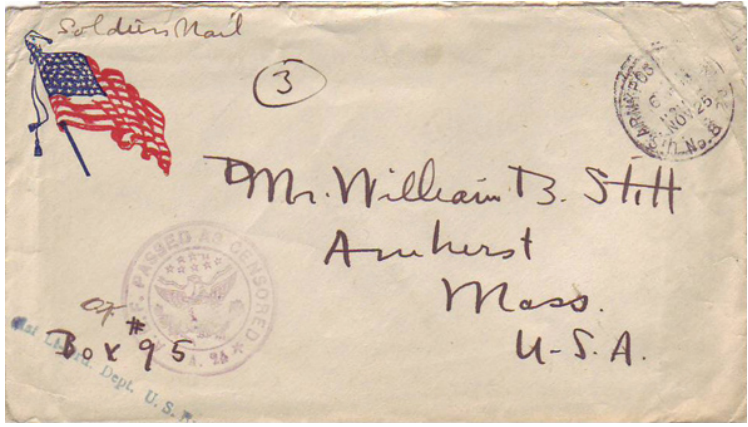 Soldiers Mail
3
U.S. ARMY POS
NOV 25
No. 8
Mr. William B. Stitt
Amherst
Mass.
U-S.A.
PASSED AS CENSORED
A.
#
Box 95
Dept. U. S.